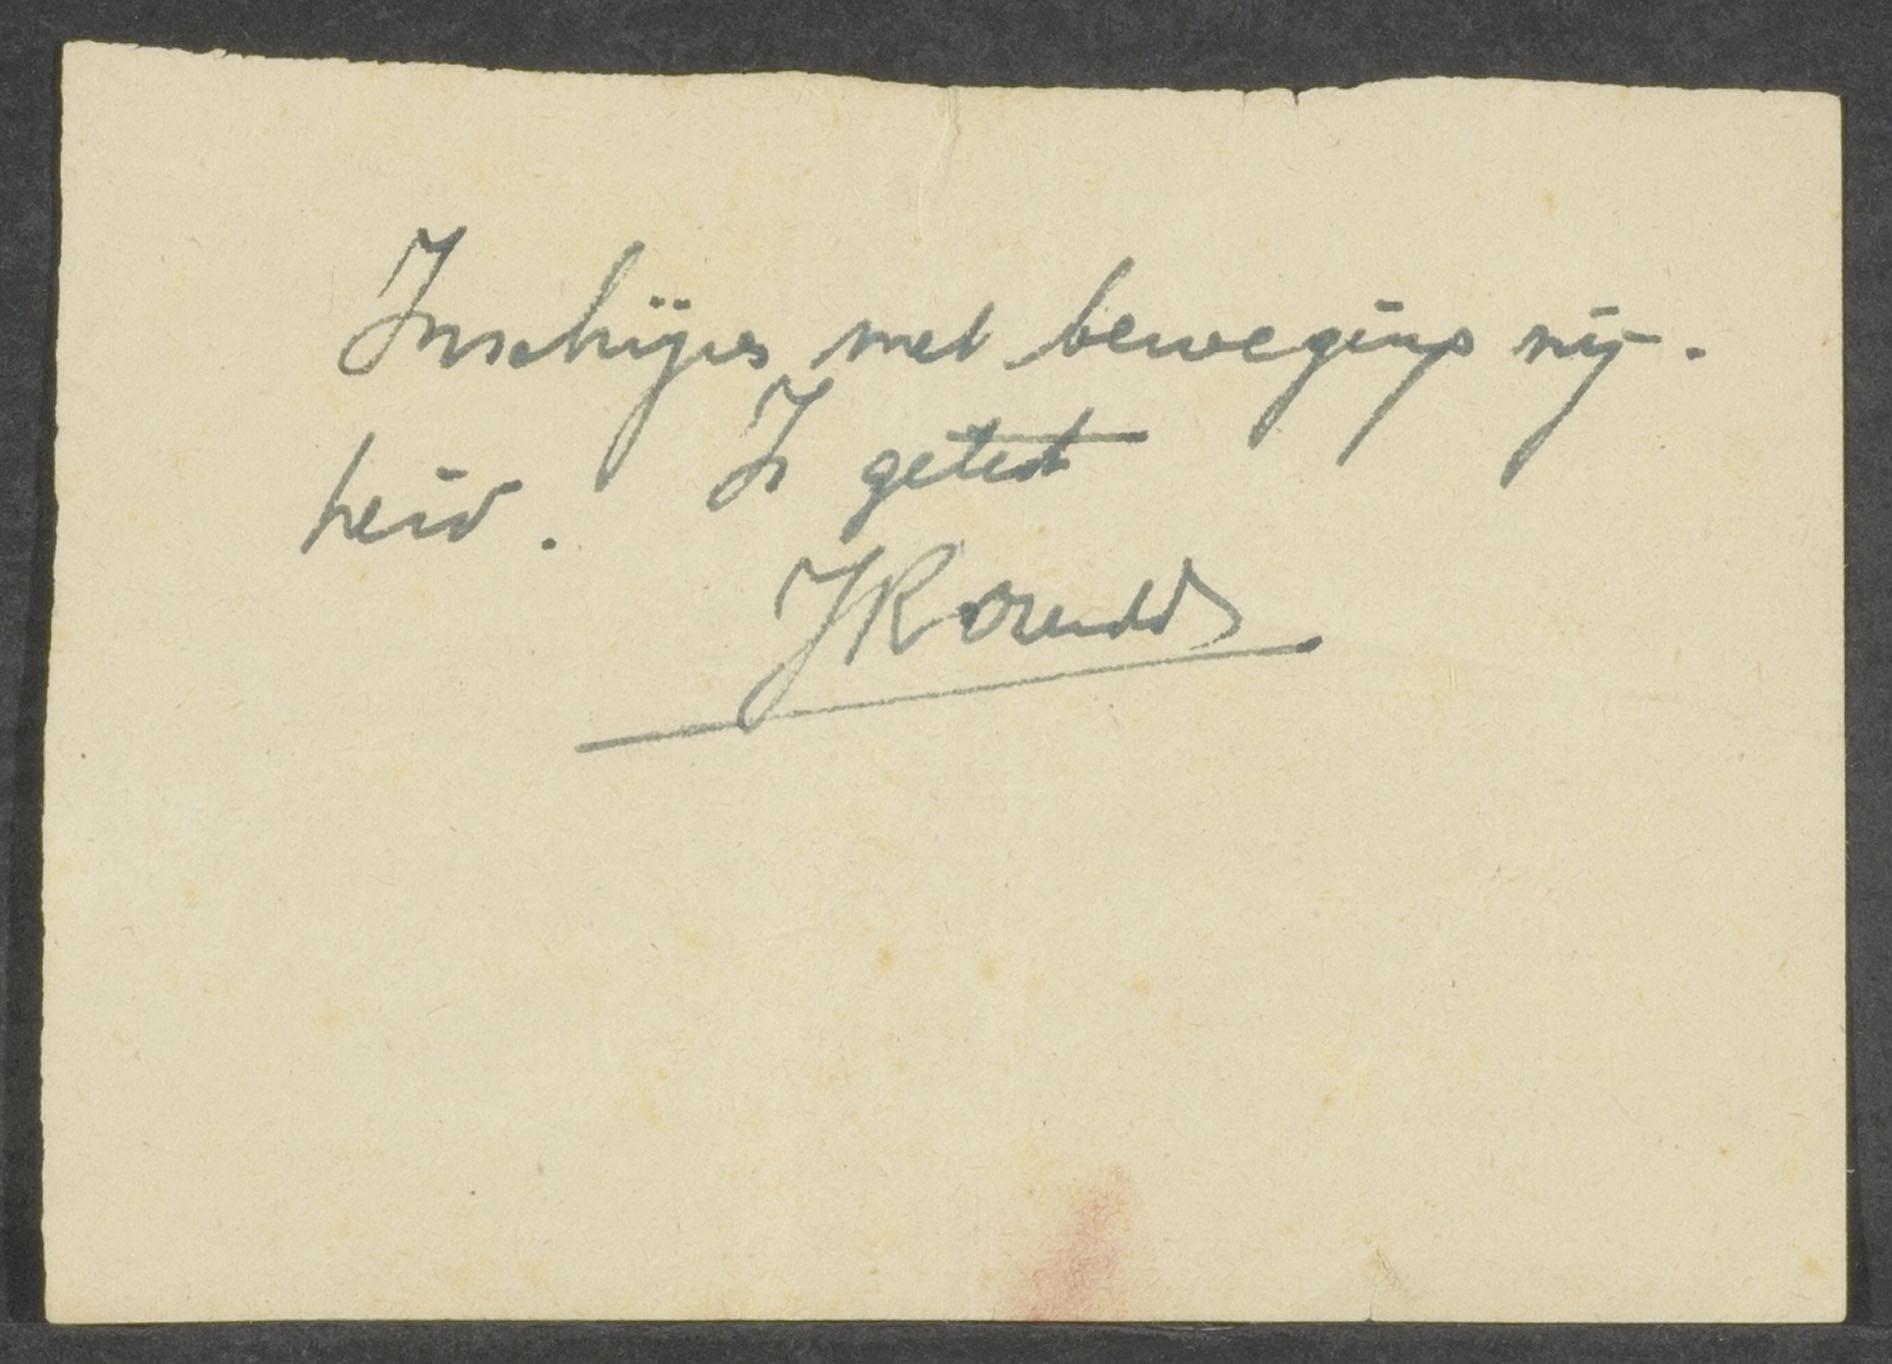 Inschrijven met bewegings vrij-
heid. Is getest